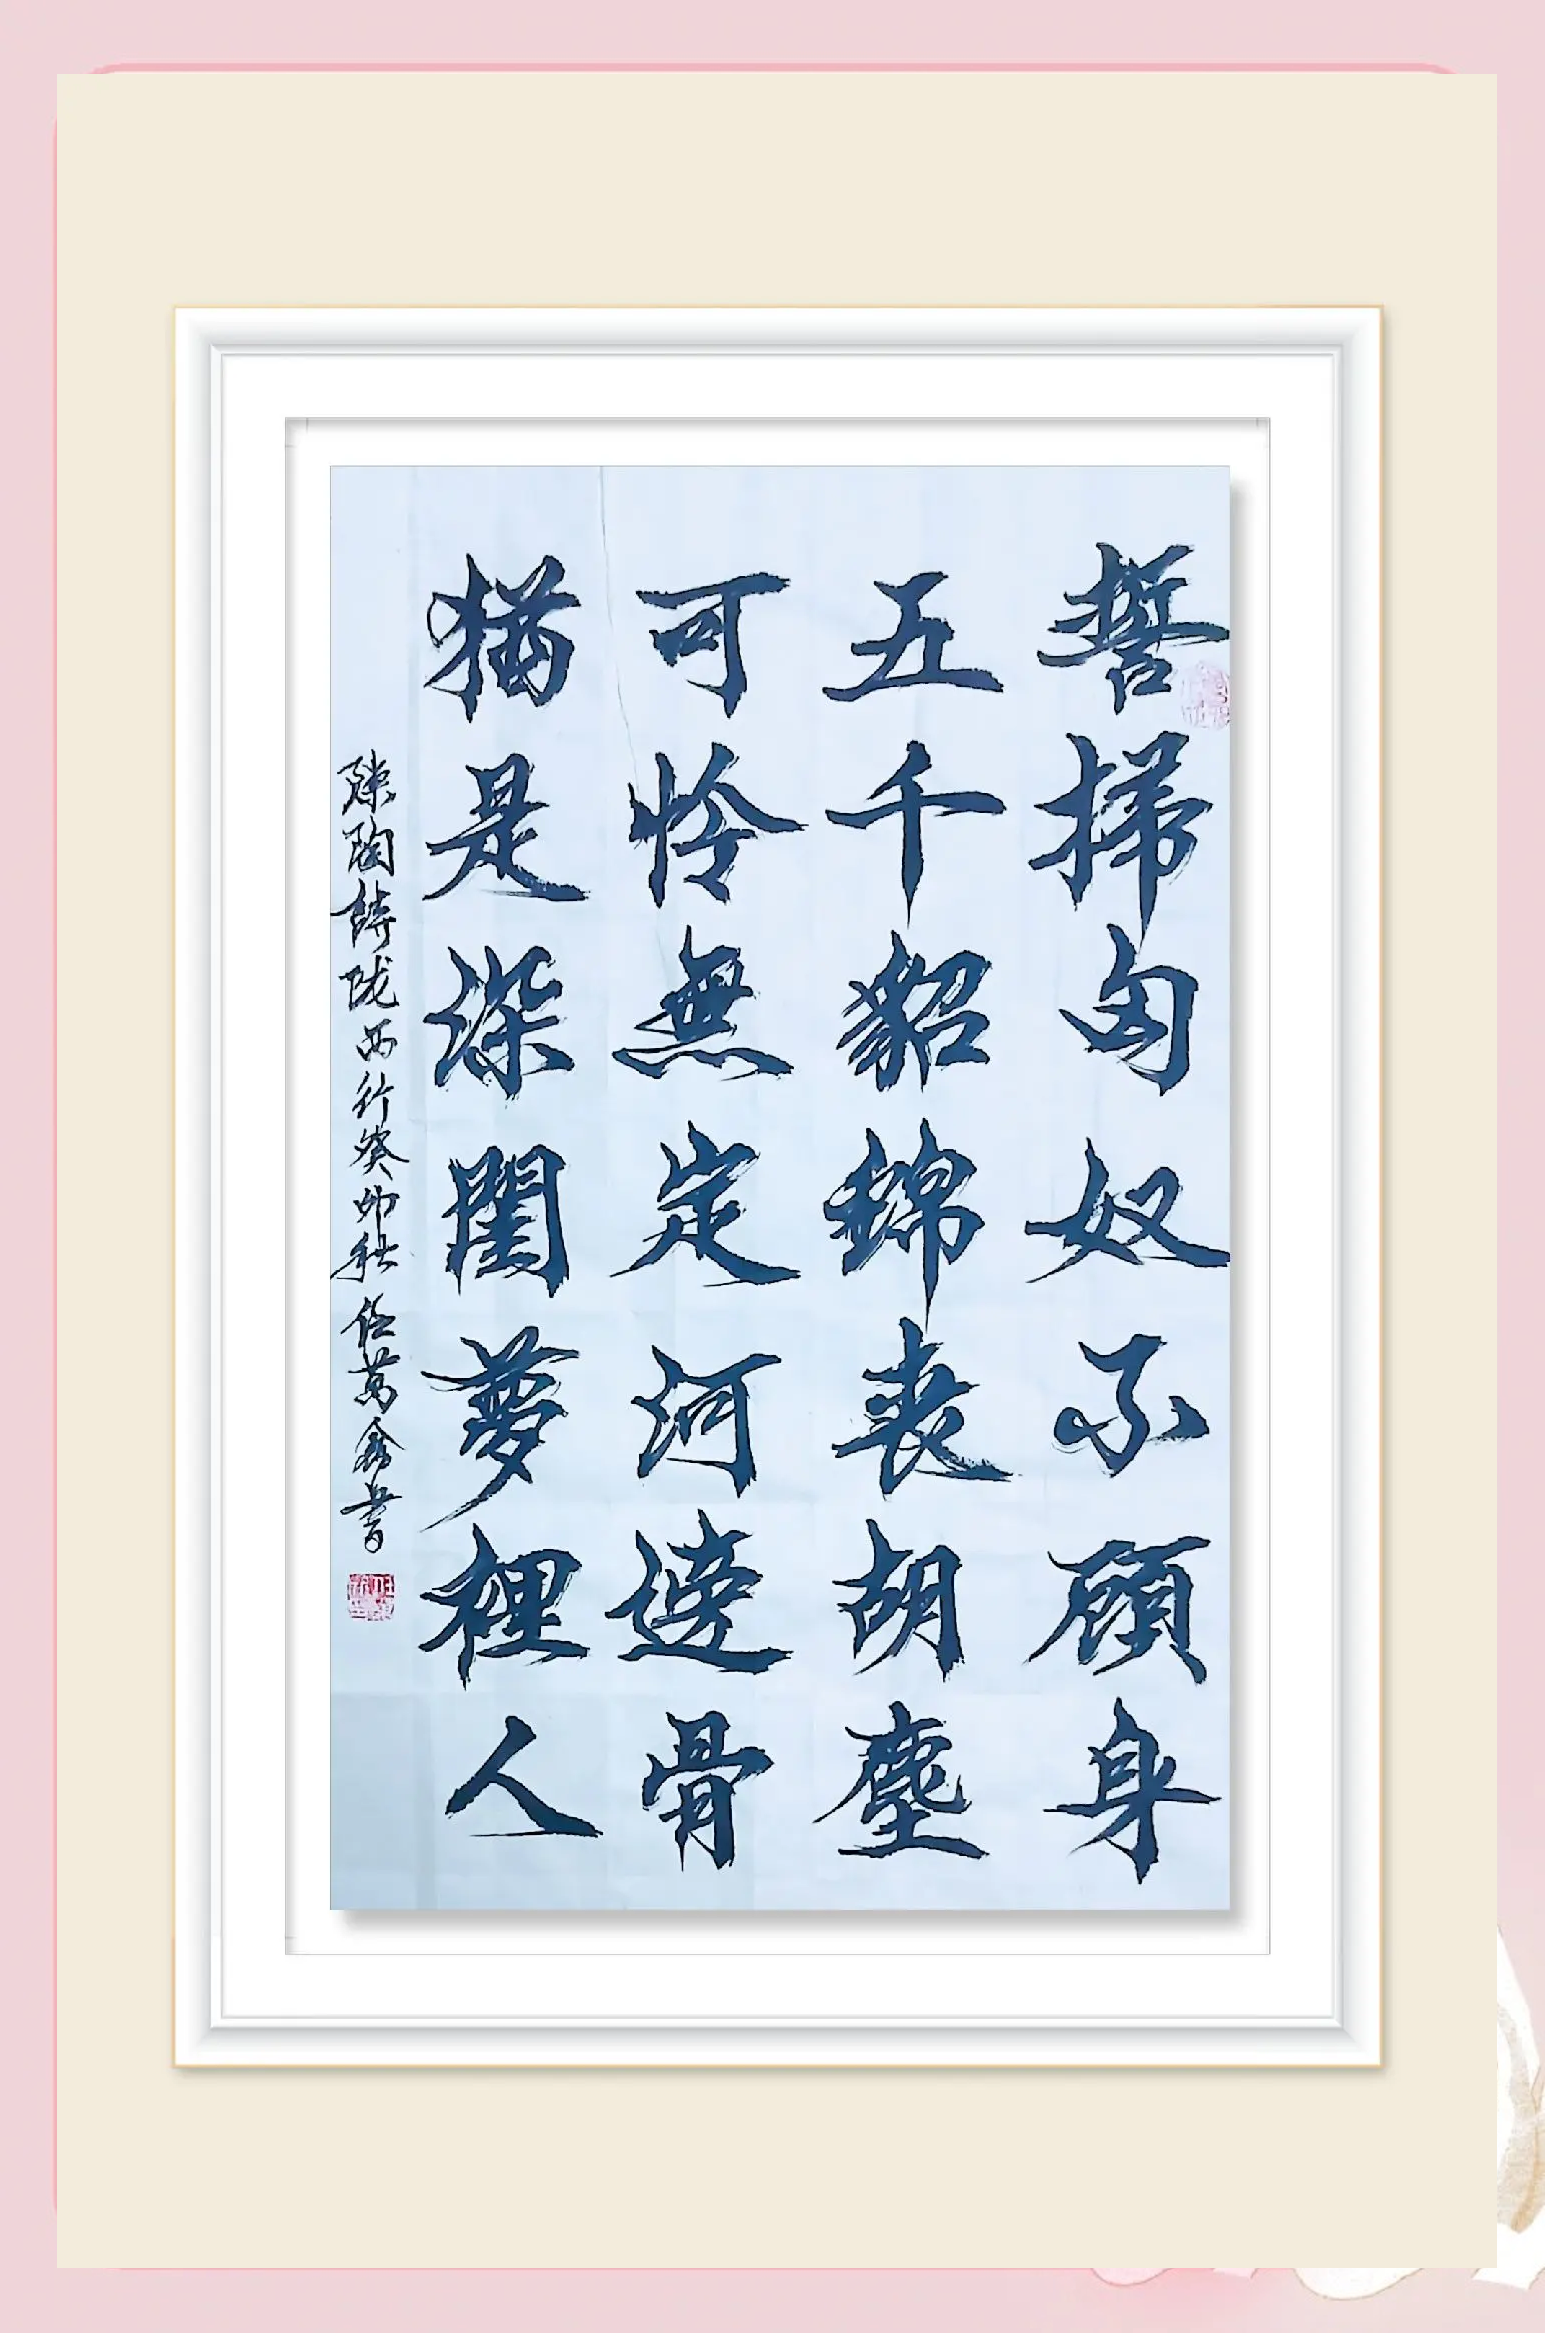 誓掃匈奴不顧身
五千貂錦丧胡塵
可怜無定河邊骨
猶是深閨夢裡人
陳陶詩陇西行癸卯秋任萬鑫書